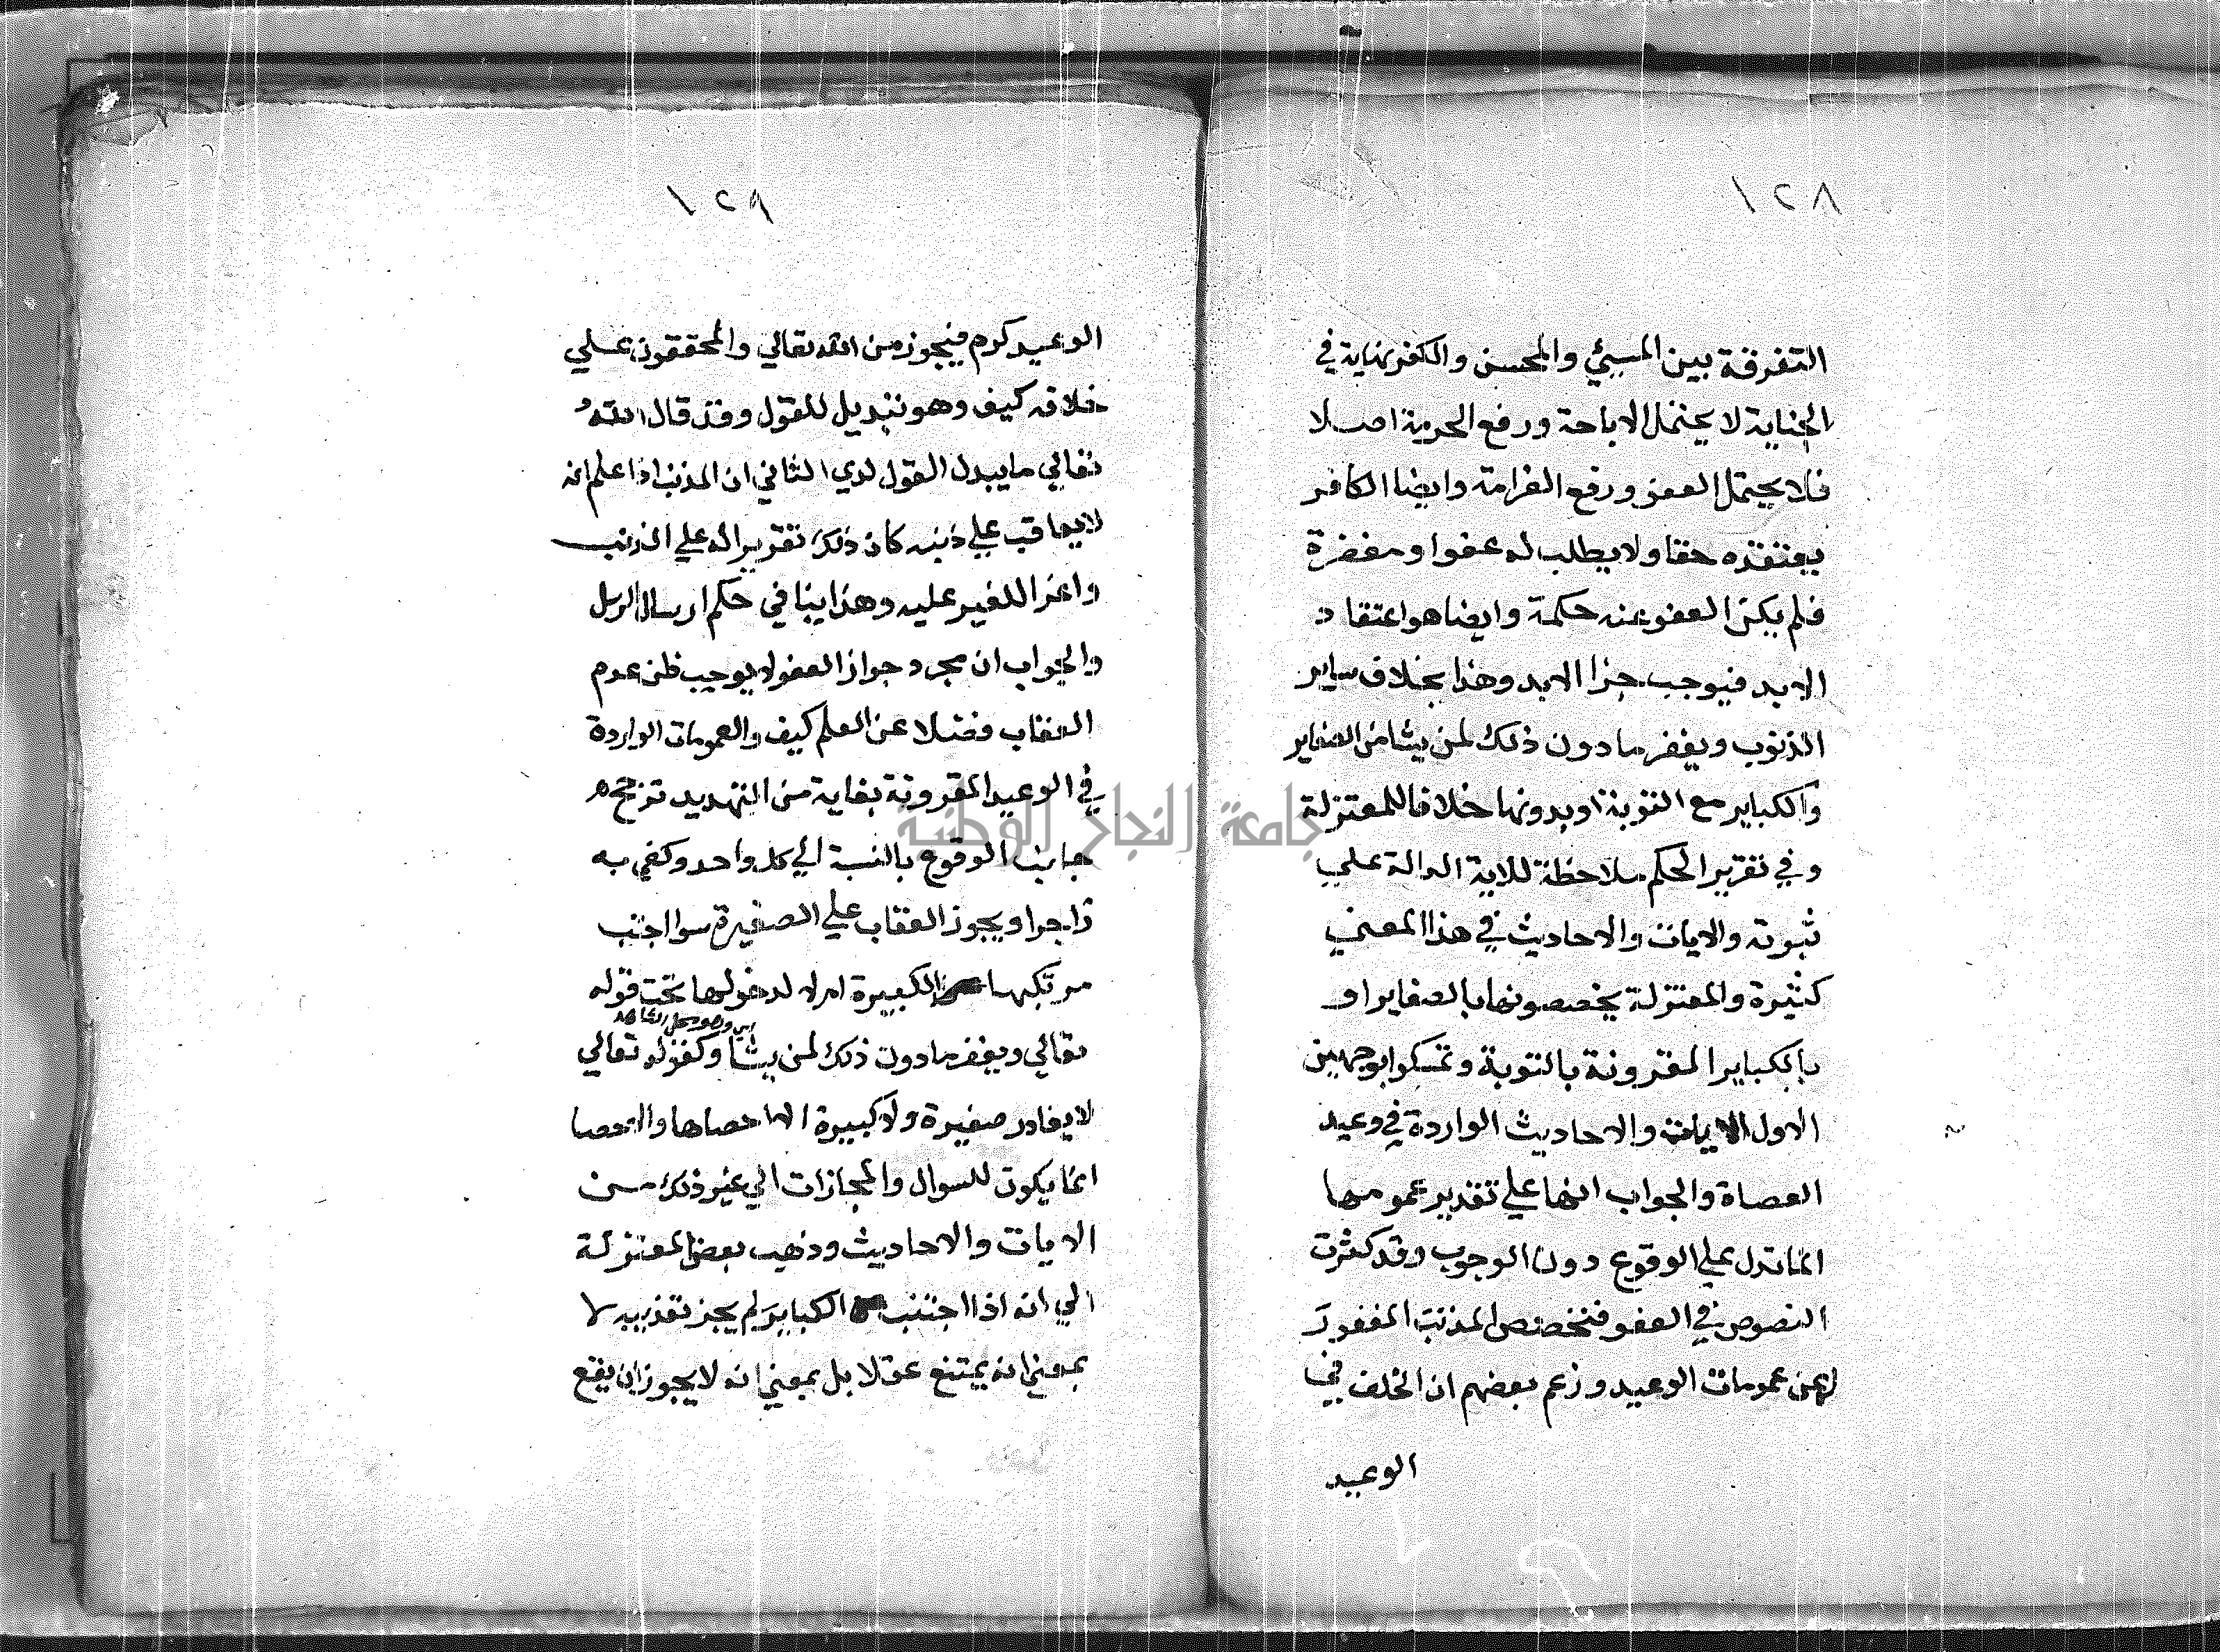 ١٢٨
التفرقة بين المسيئ والمحسن والكفر نهاية في
الجناية لا يحتمل الاباحة ورفع الحرمة اصلا
فلا يحتمل العفو ورفع الغرامة وايضا الكافر
يعتقده حقا ولا يطلب له عفوا ومغفرة
فلم يكن العفو عنه حكمة وايضا هو اعتقاد
الابد فيوجب جزا الابد وهذا بخلاف ساير
الذنوب ويغفر ما دون ذلك لمن يشا من الصغاير
والكباير مع التوبة او بدونها خلافا للمعتزلة
وفي تقرير الحكم ملاحظة للاية الدالة علي
ثبوته والايات والاحاديث في هذا المعني
كثيرة والمعتزلة يخصصونها بالصغاير او
بالكباير المقرونة بالتوبة وتمسكوا بوجهين
الاول الايات والاحاديث الواردة في وعيد
العصاة والجواب انها علي تقدير عمومها
انما تدل علي الوقوع دون الوجوب وقد كثرت
النصوص في العفو فتخصص المذنب المغفور
له عن عمومات الوعيد وزعم بعضهم ان الخلف في
الوعيد
١٢٩
الوعيد كرم فيجوز من الله تعالي والمحققون علي
خلافه كيف وهو تبديل للقول وقد قال الله
تعالي ما يبدل القول لدي الثاني ان المذنب اذا علم انه
لا يعاقب علي ذنبه كان ذلك تقريرا له علي الذنب
واغرا للغير عليه وهذا ينافي حكم ارسال الرسل
والجواب ان مجرد جواز العفو لا يوجب ظن عدم
العقاب فضلا عن العلم كيف والعمومات الواردة
في الوعيد المقرونة بغاية من التهديد ترجح
جانب الوقوع بالنسبة الي كل واحد وكفي به
زاجرا ويجوز العقاب علي الصغيرة سوا اجتنب
مرتكبها الكبيرة ام لا لدخولها تحت قوله
تعالي ويغفر ما دون ذلك لمن يشا وكقوله تعالي
لا يغادر صغيرة ولا كبيرة الا احصاها والاحصا
انما يكون للسوال والمجازات الي غير ذلك من
الايات والاحاديث وذهب بعض المعتزلة
الي انه اذا اجتنب الكباير لم يجز تعذيبه لا
بمعني انه يمتنع عقلا بل بمعني انه لا يجوز ان يقع
جامعة النجاح الوطنية